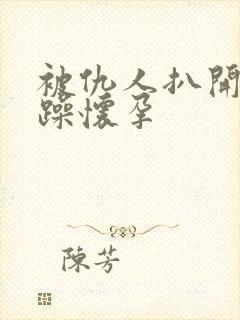 被仇人扒開
躁懷孕
陳芳